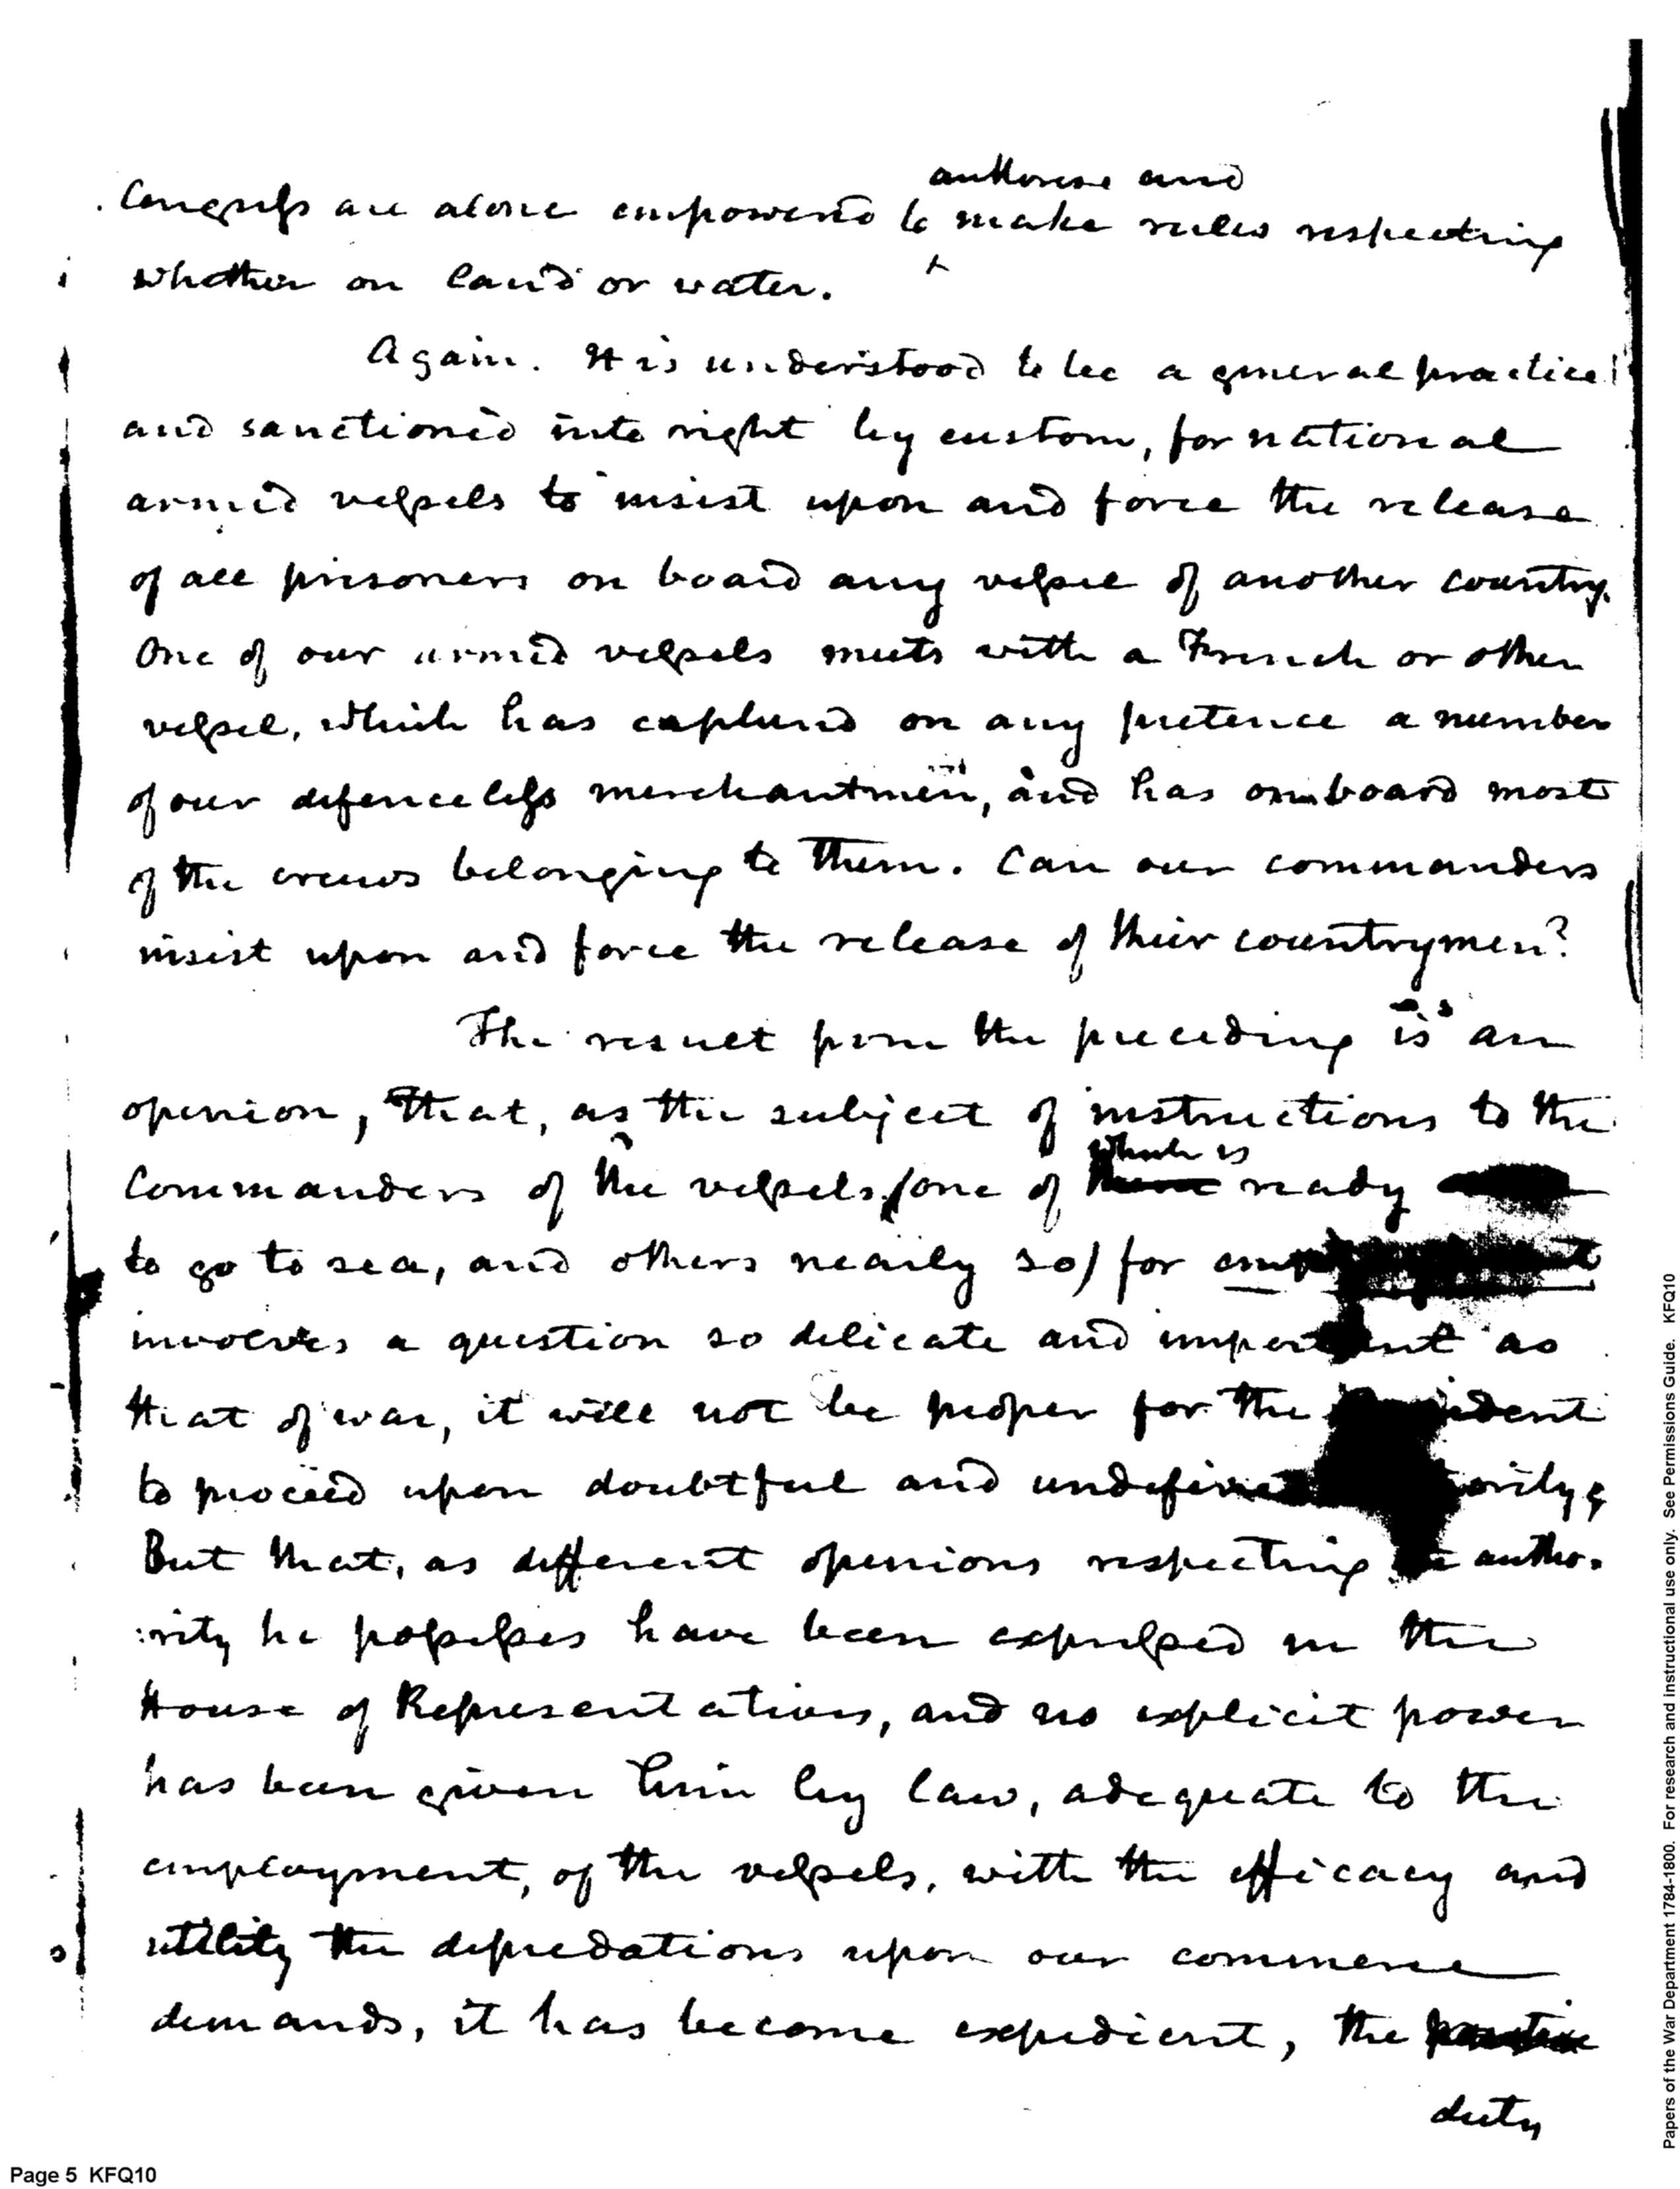 authorise and
Congress are alone empowered to make rules respecting
whether on land or water.
Again. It is understood to be a general practice
and sanctioned into right by custom, for national
armed vessels to insist upon and force the release
of all prisoners on board any vessel of another country.
One of our armed vessels meets with a French or other
vessel, which has captured on any pretence a number
of our defenceless merchantmen, and has on board most
of the crews belonging to them. Can our commanders
insist upon and force the release of their countrymen?
The result from the preceding is an
opinion, that, as the subject of instructions to the
which is
Commanders of the vessels (one of ready
to go to sea, and others nearly so) for
involves a question so delicate and important as
that of war, it will not be proper for the
to proceed upon doubtful and
But that, as different opinions respecting the autho-
:rity he possesses have been expressed in the
House of Representatives, and no explicit power
has been given him by law, adequate to the
employment, of the vessels, with the efficacy and
utility the depredations upon our commerce
demands, it has become expedient, the
duty
Page 5 KFQ10
Papers of the War Department 1784-1800. For research and instructional use only. See Permissions Guide. KFQ10